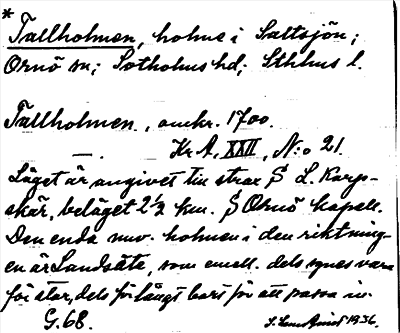 *
Tallholmen, holme i Saltsjön;
Ornö sn; Sotholms hd; Sthlms l.
Tallholmen, omkr. 1700.
— . Kr A, XXII, N:o 21.
Läget är angivet till strax S L. Karp-
skär, beläget 2½ km. S Ornö kapell.
Den enda nuv. holmen i den riktning-
en är Landsäte, som emell. dels synes vara
för stor, dels för långt bort för att passa in.
G.68. 1936.